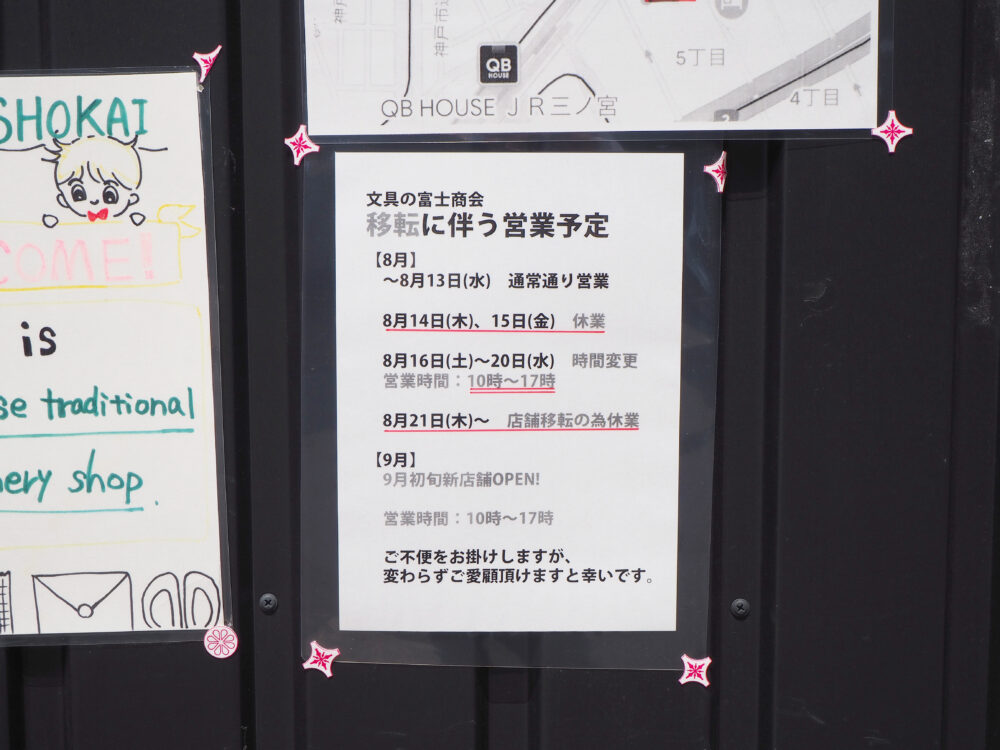 SHOKAI
COME!
is
se traditional
ery shop.
神戸市
5丁目
4丁目
QB
HOUSE
QB HOUSE JR三ノ宮
文具の富士商会
移転に伴う営業予定
【8月】
～8月13日(水) 通常通り営業
8月14日(木)、15日(金) 休業
8月16日(土)～20日(水) 時間変更
営業時間：10時～17時
8月21日(木)～ 店舗移転の為休業
【9月】
9月初旬新店舗OPEN!
営業時間：10時～17時
ご不便をお掛けしますが、
変わらずご愛顧頂けますと幸いです。